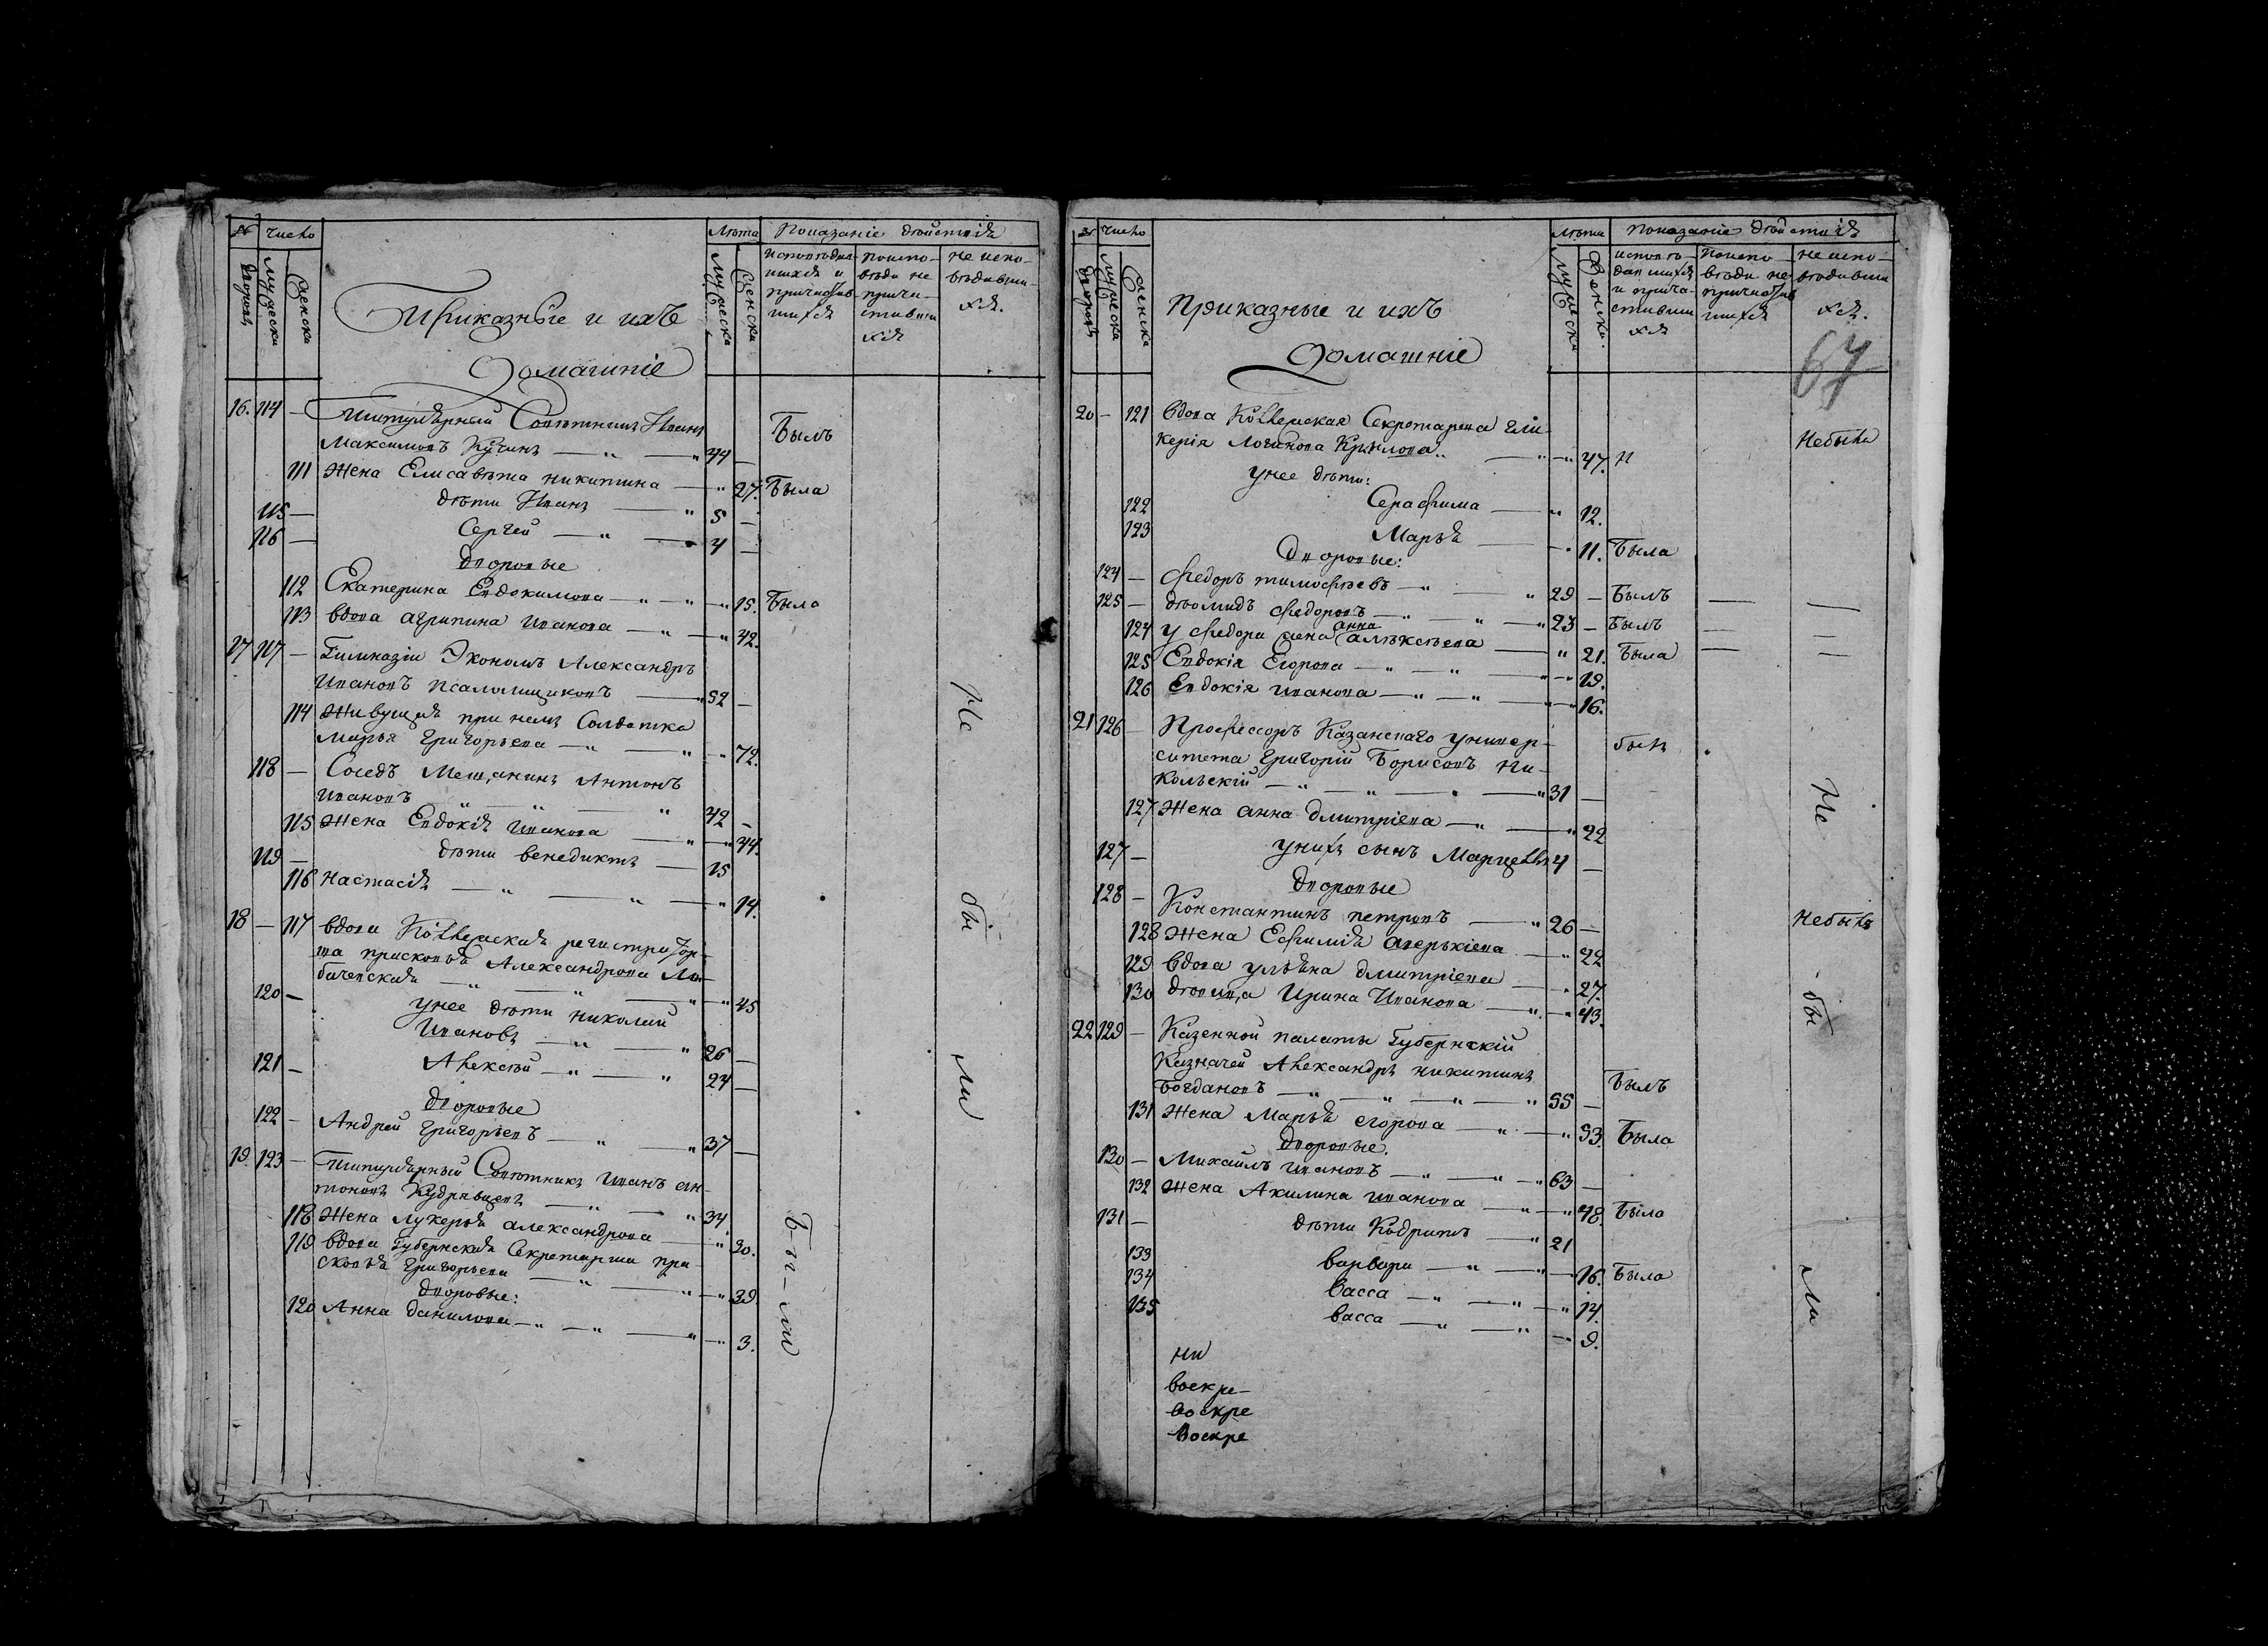 № Число Лѣта Показаніе дѣйствій
дворовъ мужеска женска мужеска женска
исповѣдав- поиспо- не испо-
шихся и вѣди не вѣдавши-
причастив- прича- хся.
шихся стивши
хся
Приказные и ихъ
Домашніе
16. 114 — Титулярный Совѣтникъ Иванъ
Максимовъ Кучинъ — " — " 44 — Былъ
111 Жена Елисавѣта никитина — " 27. Была
115 — дѣти Иванъ — " 5 —
116 — Сергей — " — 4 —
Дворовые
112 Екатерина Евдокимова — " — " — " 15. Была
113 вдова агрипина иванова — " — " 42.
17 117 — Гимназіи Экономъ Александръ
ивановъ псаломщиковъ — " 52 —
114 Живущая при немъ Солдатка
Марья григорьева — " — " — " 72.
118 — Соседъ Мещанинъ Антонъ
ивановъ " — " — " 42 —
115 Жена Евдокія иванова — " — " 44.
119 — дѣти венедиктъ — 15
116 настасія — " — " — " 14.
18 — 117 вдова Коллежская регистратор-
ша прасковья Александрова
— " — " — " — " 45
120 — унее дѣти николай
ивановъ — " — " 26 —
121 — Алексѣй — " — " 24 —
дворовые
122 — Андрей григорьевъ — " — " 37 —
19. 123 — Титулярный Совѣтникъ иванъ ан-
тоновъ Кудрявцевъ — " — " 34.
118 Жена лукерья александрова — " 30.
119 вдова Губернская Секретарша пра-
сковья григорьева — " — " — " 39
дворовые:
120 Анна данилова — " — " — " — " 3.
Не бы ли
Бы-ли
№ Число Лѣта Показаніе дѣйствій
дворовъ мужеска женска мужеска женска
исповѣ- поиспо- не испо-
давшихся вѣди не вѣдавши
и прича- причастив хся.
стивши шихся
хся
67
Приказные и ихъ
Домашніе
20 — 121 вдова Коллежская Секретарша гли-
керія логинова Крылова " — " — " 47. Небыла
унее дѣти:
122 Серафима — " 12.
123 Марья — " 11. Была
Дворовые:
124 — Федоръ тимофѣевъ — " — " 29 — Былъ — —
125 — диомидъ федоровъ — " — " — " 23 — Былъ — —
124 у федора жена анна алѣксѣева — " 21. Была — —
125 Евдокія Егорова — " — " — " 19.
126 Евдокія иванова — " — " — " 16.
21 126 — Профессоръ Казанскаго универ-
ситета григорій Борисовъ ни- былъ
кольскій — " — " — " — " 31 —
127 Жена анна дмитріева — " — " 22
127 — унихъ сынъ 4 —
дворовые
128 — Константинъ петровъ — " 26 — Небылъ
128 Жена Ефимія аверькіева — " 22
129 вдова ульяна дмитріева — " 27.
130 дѣвица Ирина Иванова — " — " 43.
22 129 — Казенной палаты Губернскій
Казначей Александръ никитинъ
Богдановъ — " — " — " — " 55 — Былъ
131 Жена Марья егорова — " — " 53. Была
дворовые.
130 — Михаилъ ивановъ — " — " — " 63 —
132 Жена Акилина иванова — " — " 48. Была
131 — дѣти Кодратъ — " 21
133 варвара — " — " — 16. Была
134 васса — " — " — " 14.
135 васса — " — " — " 9.
Не бы ли
ни
воскре-
воскре
воскре